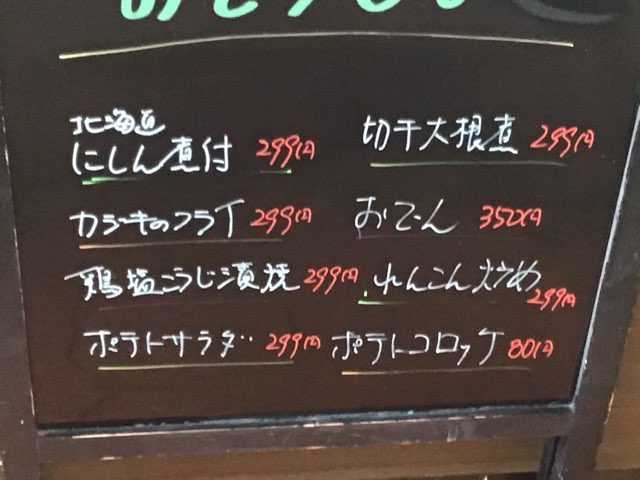 北海道
にしん煮付 299円
カラーキのフライ 299円
鶏塩こうじ漬焼 299円
ポテトサラダ 299円
切干大根煮 299円
おでん 350円
れんこん炒め 299円
ポテトコロッケ 80円